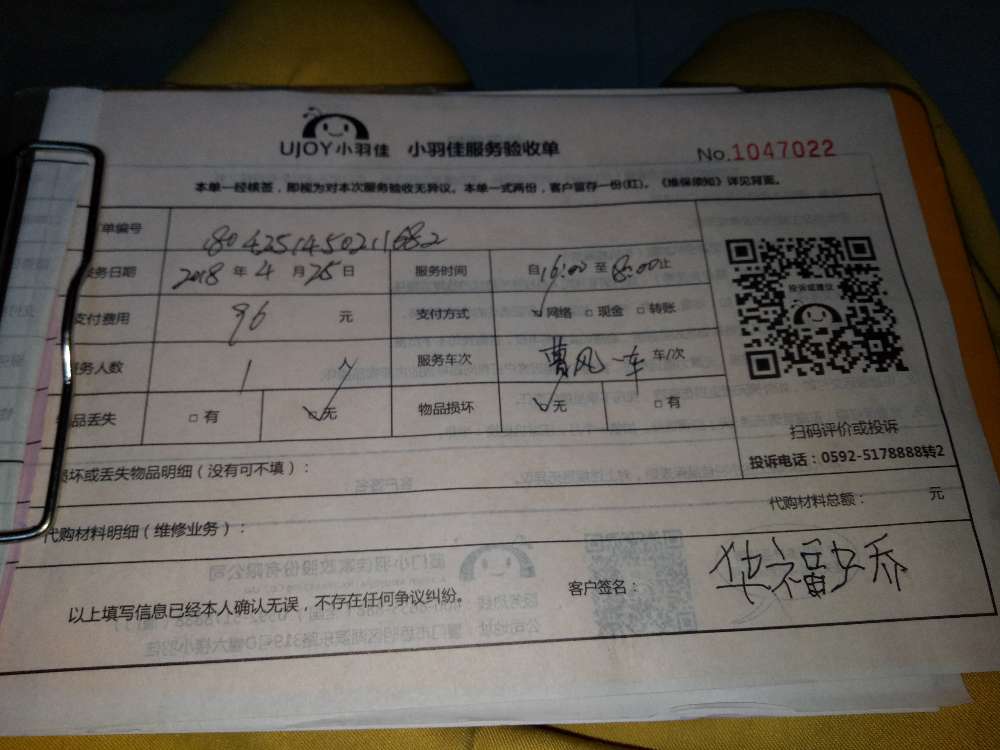 UJOY小羽佳 小羽佳服务验收单 No.1047022
本单一经核签，即视为对本次服务验收无异议。本单一式两份，客户留存一份(红)。《维保须知》详见背面。
单编号 180425145021682
服务日期 2018年4月25日 服务时间 自16:00至18:00止
支付费用 96元 支付方式 网络 □现金 □转账
服务人数 1 服务车次 车/次
物品丢失 □有 □无 物品损坏 □无 □有
投诉或建议
扫码评价或投诉
投诉电话：0592-5178888转2
损坏或丢失物品明细（没有可不填）：
代购材料明细（维修业务）： 代购材料总额： 元
以上填写信息已经本人确认无误，不存在任何争议纠纷。 客户签名：